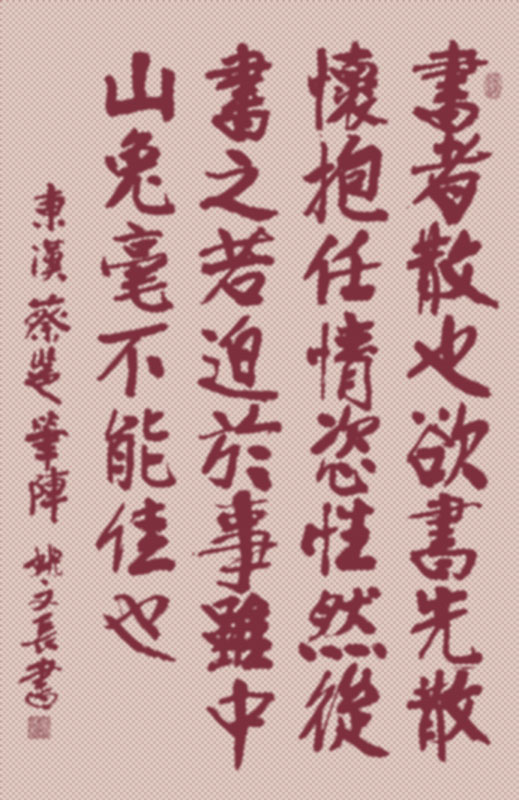 書者散也欲書先散
懷抱任情恣性然後
書之若迫於事雖中
山兔毫不能佳也
東漢蔡邕筆陣 文長書